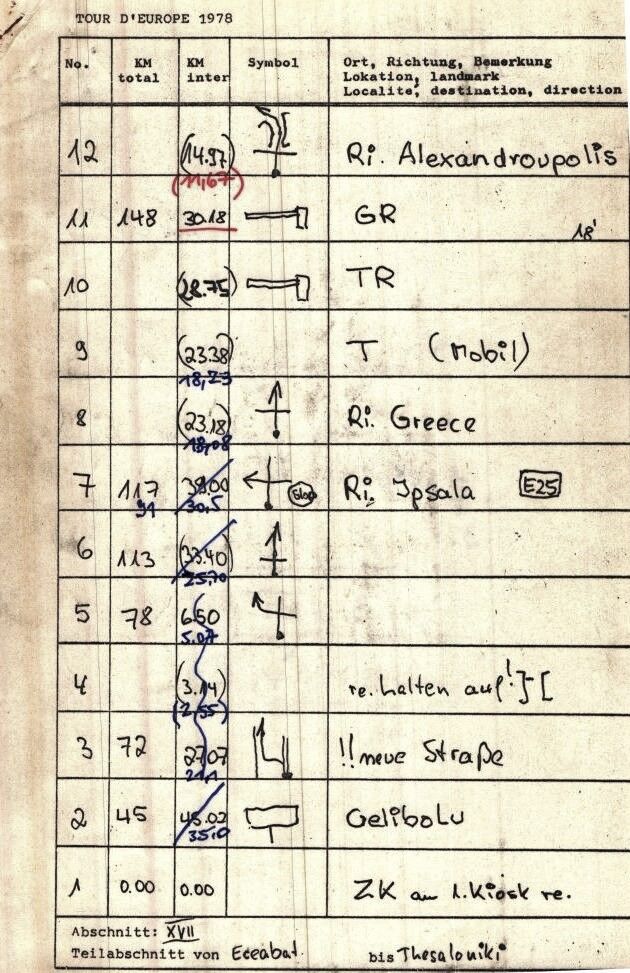 TOUR D'EUROPE 1978
No. KM total KM inter Symbol Ort, Richtung, Bemerkung
Lokation, landmark
Localité, destination, direction
12 (14.97) Ri. Alexandroupolis
(11,67)
11 148 30.18 GR 18'
10 (28.75) TR
9 (23.38) T (Mobil)
18,23
8 (23.18) Ri. Greece
18,08
7 117 39.00 Stop Ri. Ipsala E25
91 30.5
6 113 (33.40)
25.70
5 78 6.50
5.07
4 (3.14) re. halten auf! ] - [
(2,55)
3 72 27.07 !! neue Straße
21,1
2 45 45.02 Gelibolu
35.0
1 0.00 0.00 ZK am 1. Kiosk re.
Abschnitt: XVII
Teilabschnitt von Eceabat bis Thesaloniki